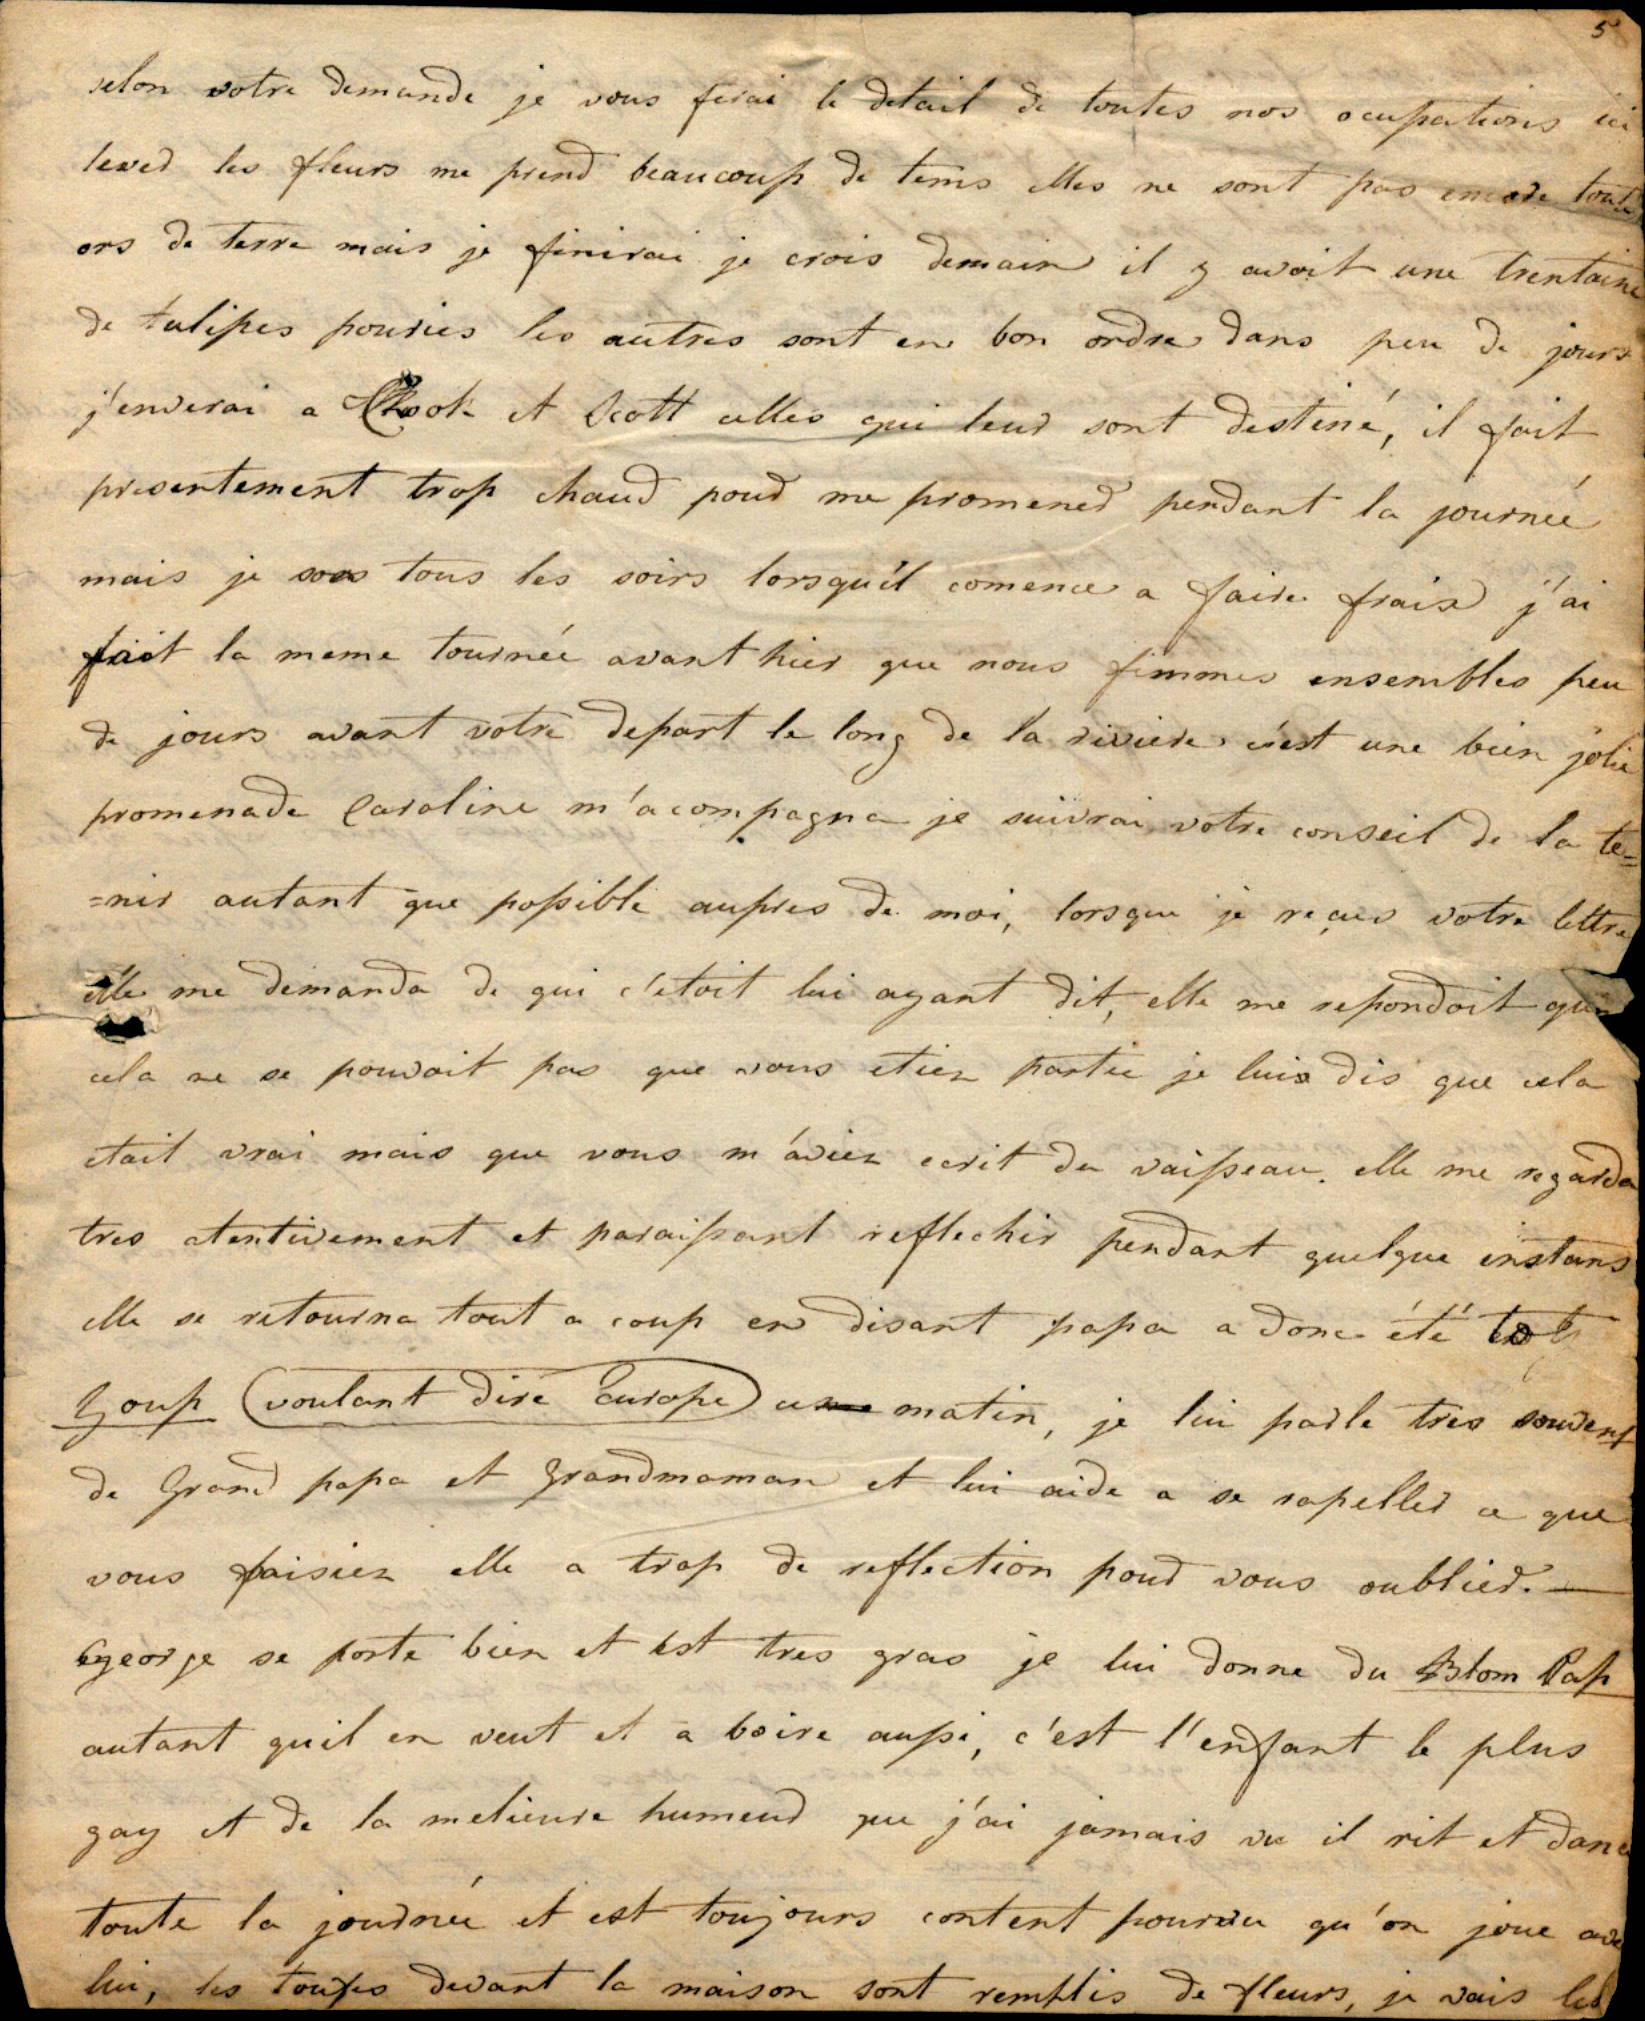 5
selon votre demande je vous ferai le detail de toutes nos ocupations ici
lever les fleurs me prend beaucoup de tems elles ne sont pas encore toute
ors de terre mais je finirai je crois demain il y avoit une trentaine
de tulipes pouries les autres sont en bon ordre dans peu de jours
j'enverai a et Scott celles qui leur sont destiné, il fait
presentement trop chaud pour me promener pendant la journée
mais je sors tous les soirs lorsqu'il comence a faire frais j'ai
fait la meme tournée avant hier que nous fimmes ensembles peu
de jours avant votre depart le long de la riviere c'est une bien jolie
promenade Caroline m'acompagna je suivrai votre conseil de la te=
=nir autant que possible aupres de moi, lorsque je reçus votre lettre
elle me demanda de qui c'etoit lui ayant dit, elle me repondoit que
cela ne se pouvoit pas que vous etiez partie je lui dis que cela
etait vrai mais que vous m'aviez ecrit du vaisseau. elle me regarda
tres atentivement et paraissant reflechir pendant quelque instans
elle se retourna tout a coup en disant papa a donc été tot
Youp (voulant dire Europe) ce matin, je lui parle tres souvent
de Grand papa et Grandmaman et lui aide a se rapeller ce que
vous faisiez elle a trop de reflection pour vous oublier. —
George se porte bien et est tres gras je lui donne du Blom Pap
autant qu'il en veut et a boire aussi, c'est l'enfant le plus
gay et de la melieure humeur que j'ai jamais vu il rit et dance
toute la journée et est toujours content pourvu qu'on joue ave
lui, les toufes devant la maison sont remplis de fleurs, je vais les